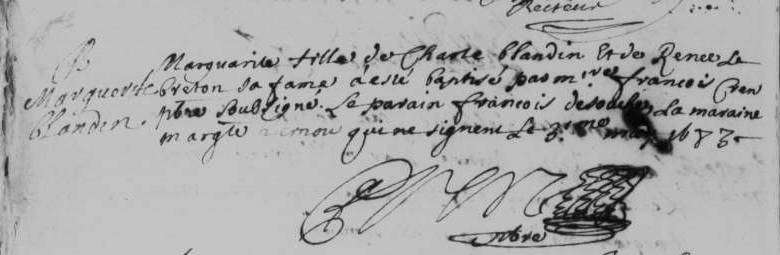 Recteur
B
Marguerite
blandin.
Marguarite fille de Charle blandin Et de Renee Le
breton sa fame a esté baptise par mire francois
pbre soubsigné. Le parain francois La maraine
margte qui ne signent Le 3eme may 1673
pbre